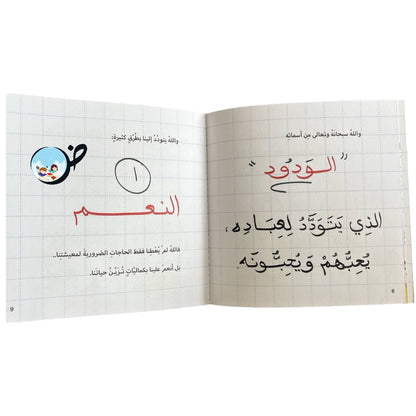 والله سبحانه وتعالى من أسمائه
"الـودُود"
الذِي يَتَوَدَّدُ لِعِبَادِه،
يُحِبُّهُمْ وَيُحِبُّونَه.
8
والله يتودّدُ إلينا بطُرُقٍ كثيرةٍ:
١
النعـــم
فاللهُ لمْ يُعْطِنا فقط الحاجات الضرورية لمعيشتنا..
بل أنعمَ علينا بكمالياتٍ تُزَيِّنُ حياتَنا.
9